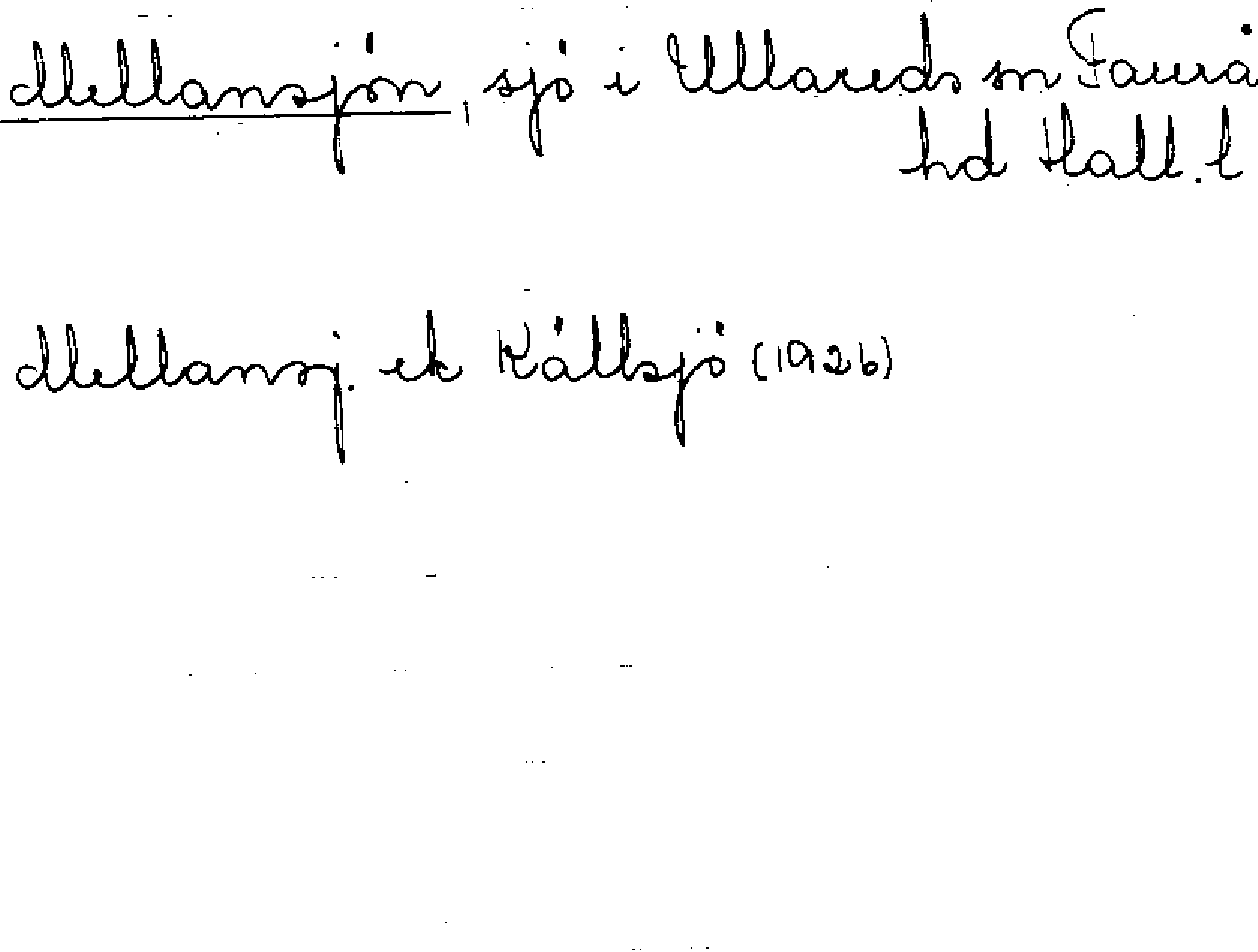 Mellansjön, sjö i Ullareds sn Faurå
hd Hall. l
Mellansj. ek Källsjö (1926)